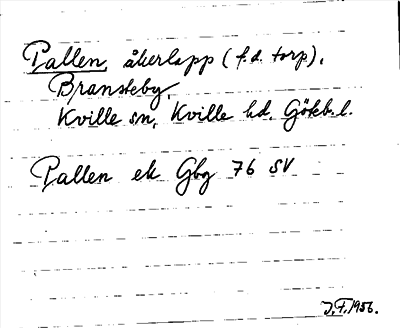 Pallen, åkerlapp (f.d. torp).
Bransteby,
Kville sn, Kville hd. Göteb. l.
Pallen ek Gbg 76 SV
J.F. 1956.